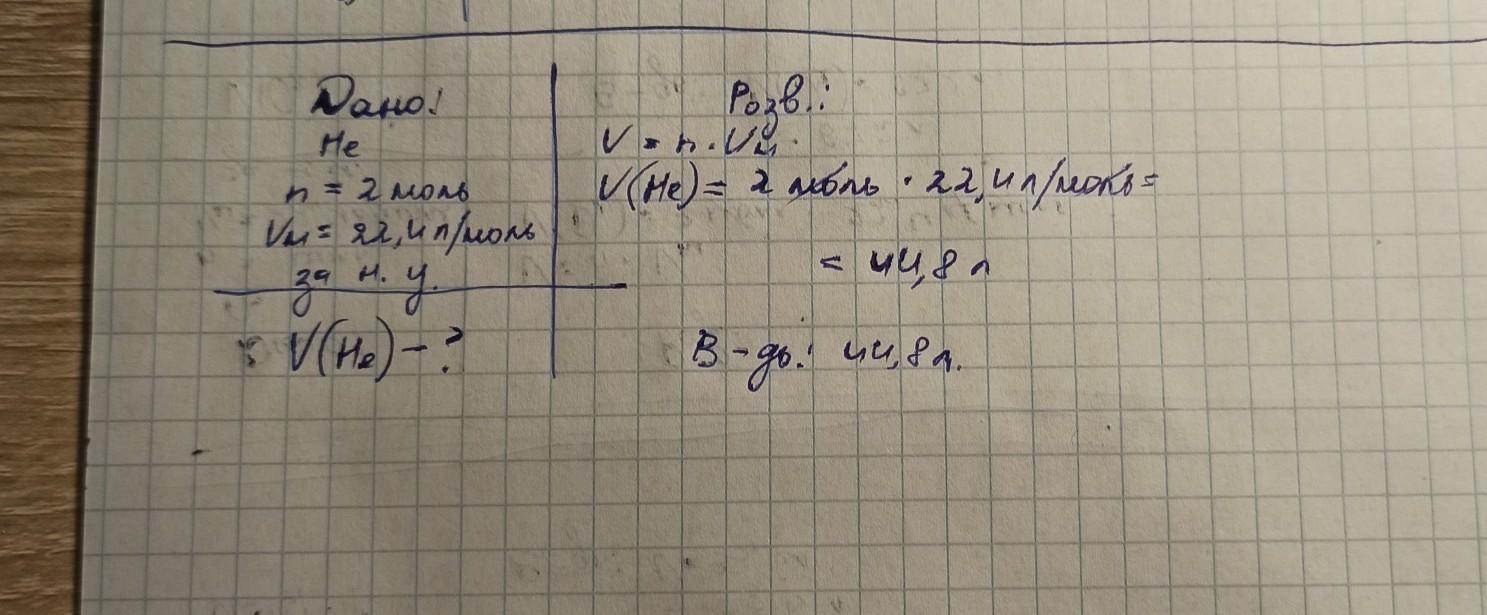 Дано:
He
n = 2 моль
Vм = 22,4 л/моль
за н. у.
V(He) - ?
Розв.:
V = n · Vм
V(He) = 2 моль · 22,4 л/моль =
= 44,8 л
В-дь: 44,8 л.